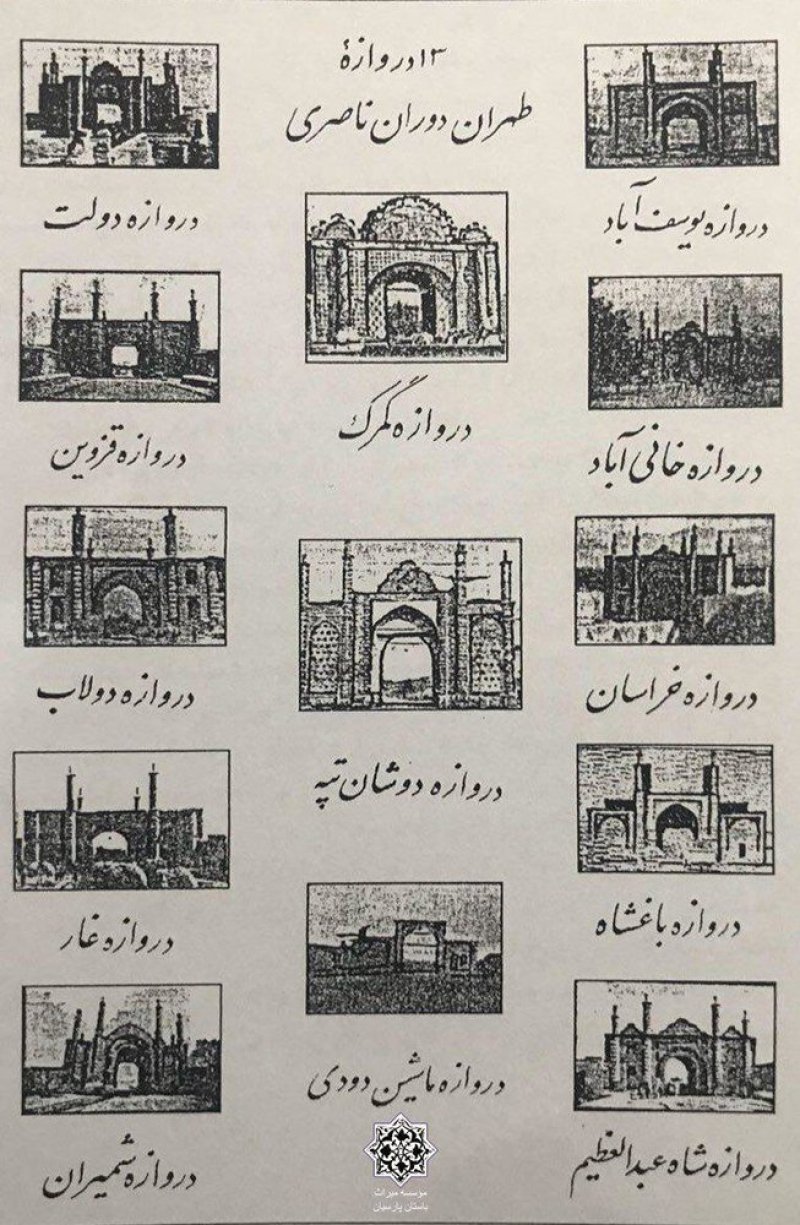 ۱۳ دروازهٔ
طهران دوران ناصری
دروازه یوسف آباد
دروازه دولت
دروازه گمرک
دروازه خانی آباد
دروازه قزوین
دروازه خراسان
دروازه دولاب
دروازه دوشان تپه
دروازه باغشاه
دروازه غار
دروازه ماشین دودی
دروازه شاه عبدالعظیم
دروازه شمیران
مؤسسه میراث
باستان پارسیان